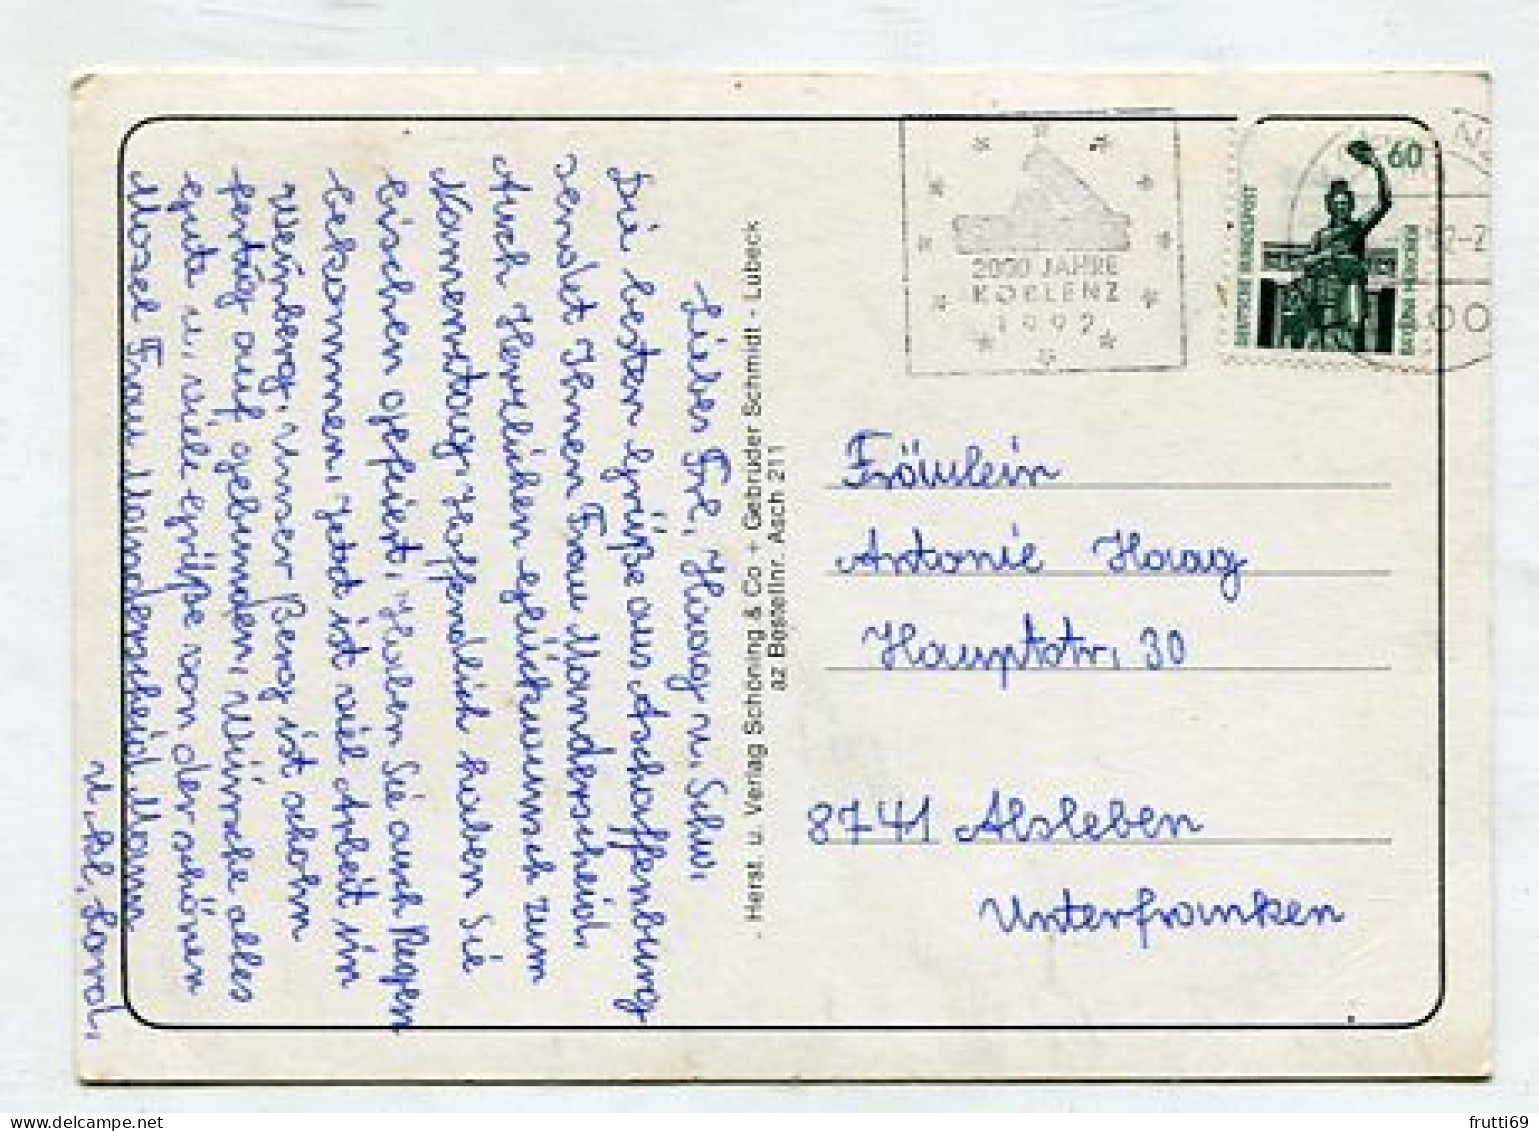 Liebes Frl, Haag u, Schw,
Die besten Grüße aus Aschaffenburg
sendet Ihnen Frau Manderscheid.
Auch Herzlichen Glückwunsch zum
Namenstag, Hoffendlich haben Sie
bischen gefeiert, Haben Sie auch Regen
bekommen, Jetzt ist viel Arbeit im
Weinberg, Unser Berg ist schon
fertig auf gebunden, Wünsche alles
gute u, viele grüße von der schönen
Mosel Frau Manderscheid Mann
u, kl, Land,
- Herst. u. Verlag Schöning & Co + Gebrüder Schmidt - Lübeck
az Bestellnr. Asch 211
2000 JAHRE
KOBLENZ
1992
60
DEUTSCHE BUNDESPOST
BAVARIA MÜNCHEN
Fräulein
Antonie Haag
Hauptstr, 30
8741 Alsleben
Unterfranken
frutti69